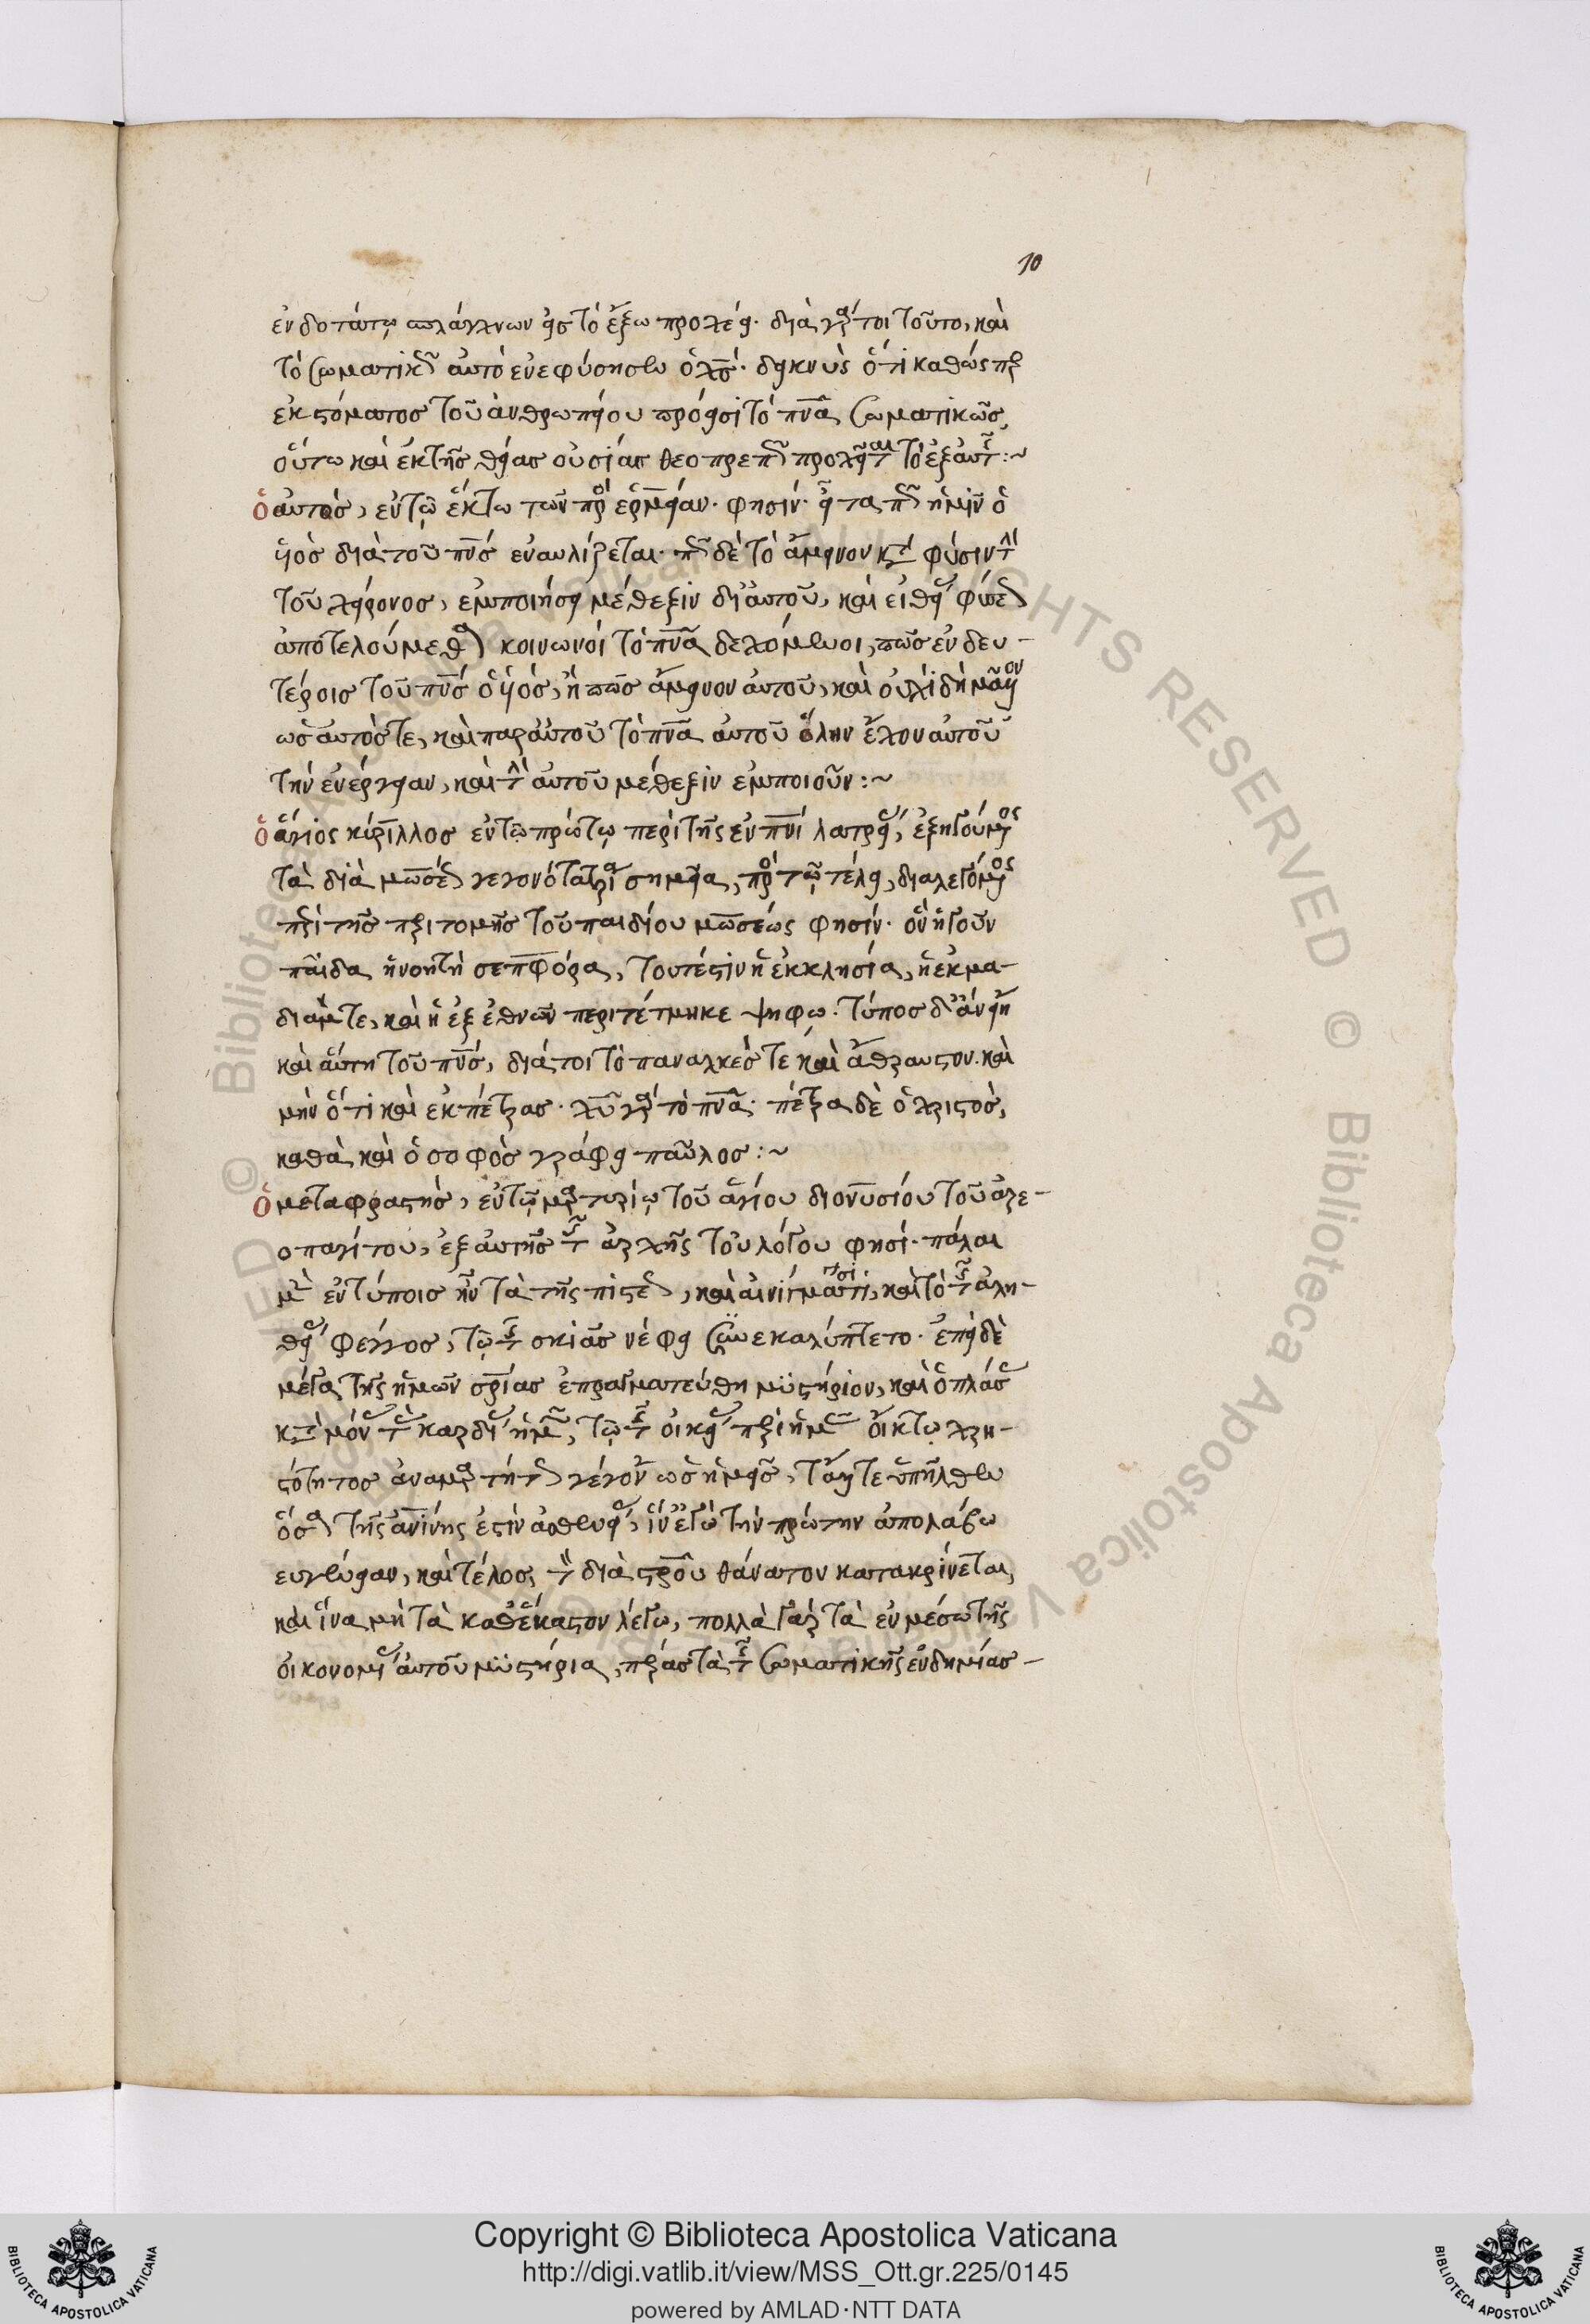 10
ἐνδοτάτω σπλάγχνων εἰς τὸ ἔξω προχέει· διὰ γάρ τοι τοῦτο, καὶ
τὸ σωματικῶς αὐτὸ ἐνεφύσησεν ὁ χς· δεικνὺς ὅτι καθὼς περ
ἐκ στόματος τοῦ ἀνθρωπείου πρόεισι τὸ πνα σωματικῶς,
οὕτω καὶ ἐκ τῆς θείας οὐσίας θεοπρεπῶς προχεῖται τὸ ἐξ αὐτῆς:~
ὁ αὐτὸς, ἐν τῷ ἕκτω τῶν πρὸς ἑρμείαν· φησίν· εἶτα πῶς ἡμῖν ὁ
υἱὸς διὰ τοῦ πνς ἐναυλίζεται· πῶς δὲ τὸ ἄμεινον κατὰ φύσιν τὴν
τοῦ χείρονος, ἐμποιήσει μέθεξιν δι' αὐτοῦ, καὶ εἰ θείας φύσεως
ἀποτελούμεθα κοινωνοὶ τὸ πνα δεχόμενοι, πῶς ἐν δευ-
τέροις τοῦ πνς ὁ υἱός, ἢ πῶς ἄμεινον αὐτοῦ, καὶ οὐχὶ δὴ μᾶλλον
ὡς αὐτός τε, καὶ παρ' αὐτοῦ τὸ πνα αὐτοῦ ὅλην ἔχον αὐτοῦ
τὴν ἐνέργειαν, καὶ τὴν αὐτοῦ μέθεξιν ἐμποιοῦν:~
ὁ ἅγιος κύριλλος ἐν τῷ πρώτῳ περὶ τῆς ἐν πνι λατρείας, ἐξηγούμενος
τὰ διὰ μωσέως γεγονότα τρία σημεῖα, πρὸς τῷ τέλει, διαλεγόμενος
περὶ τῆς περιτομῆς τοῦ παιδίου μωσέως φησίν· οὐ ἡγοῦν
παῖδα ἡ νοητὴ σεπφόρα, τουτέστιν ἡ ἐκκλησία, ἡ ἐκ μα-
διάμ τε, καὶ ἡ ἐξ ἐθνῶν περιτέτμηκε ψήφω. τύπος δ' ἂν εἴη
καὶ αὕτη τοῦ πνς, διά τοι τὸ παναλκές τε καὶ ἄθραυστον. καὶ
μὴν ὅτι καὶ ἐκ πέτρας· χυ γὰρ τὸ πνα· πέτρα δὲ ὁ χριστός,
καθὰ καὶ ὁ σοφὸς γράφει παῦλος:~
ὁ μεταφραστὴς, ἐν τῷ μαρτυρίῳ τοῦ ἁγίου διονυσίου τοῦ ἀρε-
οπαγίτου, ἐξ αὐτῆς τῆς ἀρχῆς τοῦ λόγου φησί· πάλαι
μὲν ἐν τύποις ἦν τὰ τῆς πίστεως, καὶ αἰνίγμασι, καὶ τὸ τῆς ἀλη-
θείας φέγγος, τῷ τῆς σκιᾶς νέφει συνεκαλύπτετο· ἐπεὶ δὲ
μέγα τῆς ἡμῶν σριας ἐπραγματεύθη μυστήριον, καὶ ὁ πλάσας
κατὰ μόνας τὰς καρδίας ἡμῶν, τῷ τῆς οἰκείας περὶ ἡμᾶς οἴκτῳ χρη-
στότητος ἀναμαρτήτως γέγονεν ὡς ἡμεῖς, τἄλλά τε ὑπῆλθεν
ὅσα τῆς ἀνίνης ἐστὶν ἀσθενείας, ἵν' ἐγὼ τὴν πρώτην ἀπολάβω
εὐγένειαν, καὶ τέλος τὸν διὰ στρου θάνατον κατακρίνεται,
καὶ ἵνα μὴ τὰ καθέκαστον λέγω, πολλὰ γὰρ τὰ ἐν μέσω τῆς
οἰκονομίας αὐτοῦ μυστήρια, πέρας τὰ τῆς σωματικῆς ἐνδημίας-
Copyright © Biblioteca Apostolica Vaticana
http://digi.vatlib.it/view/MSS_Ott.gr.225/0145
powered by AMLAD·NTT DATA